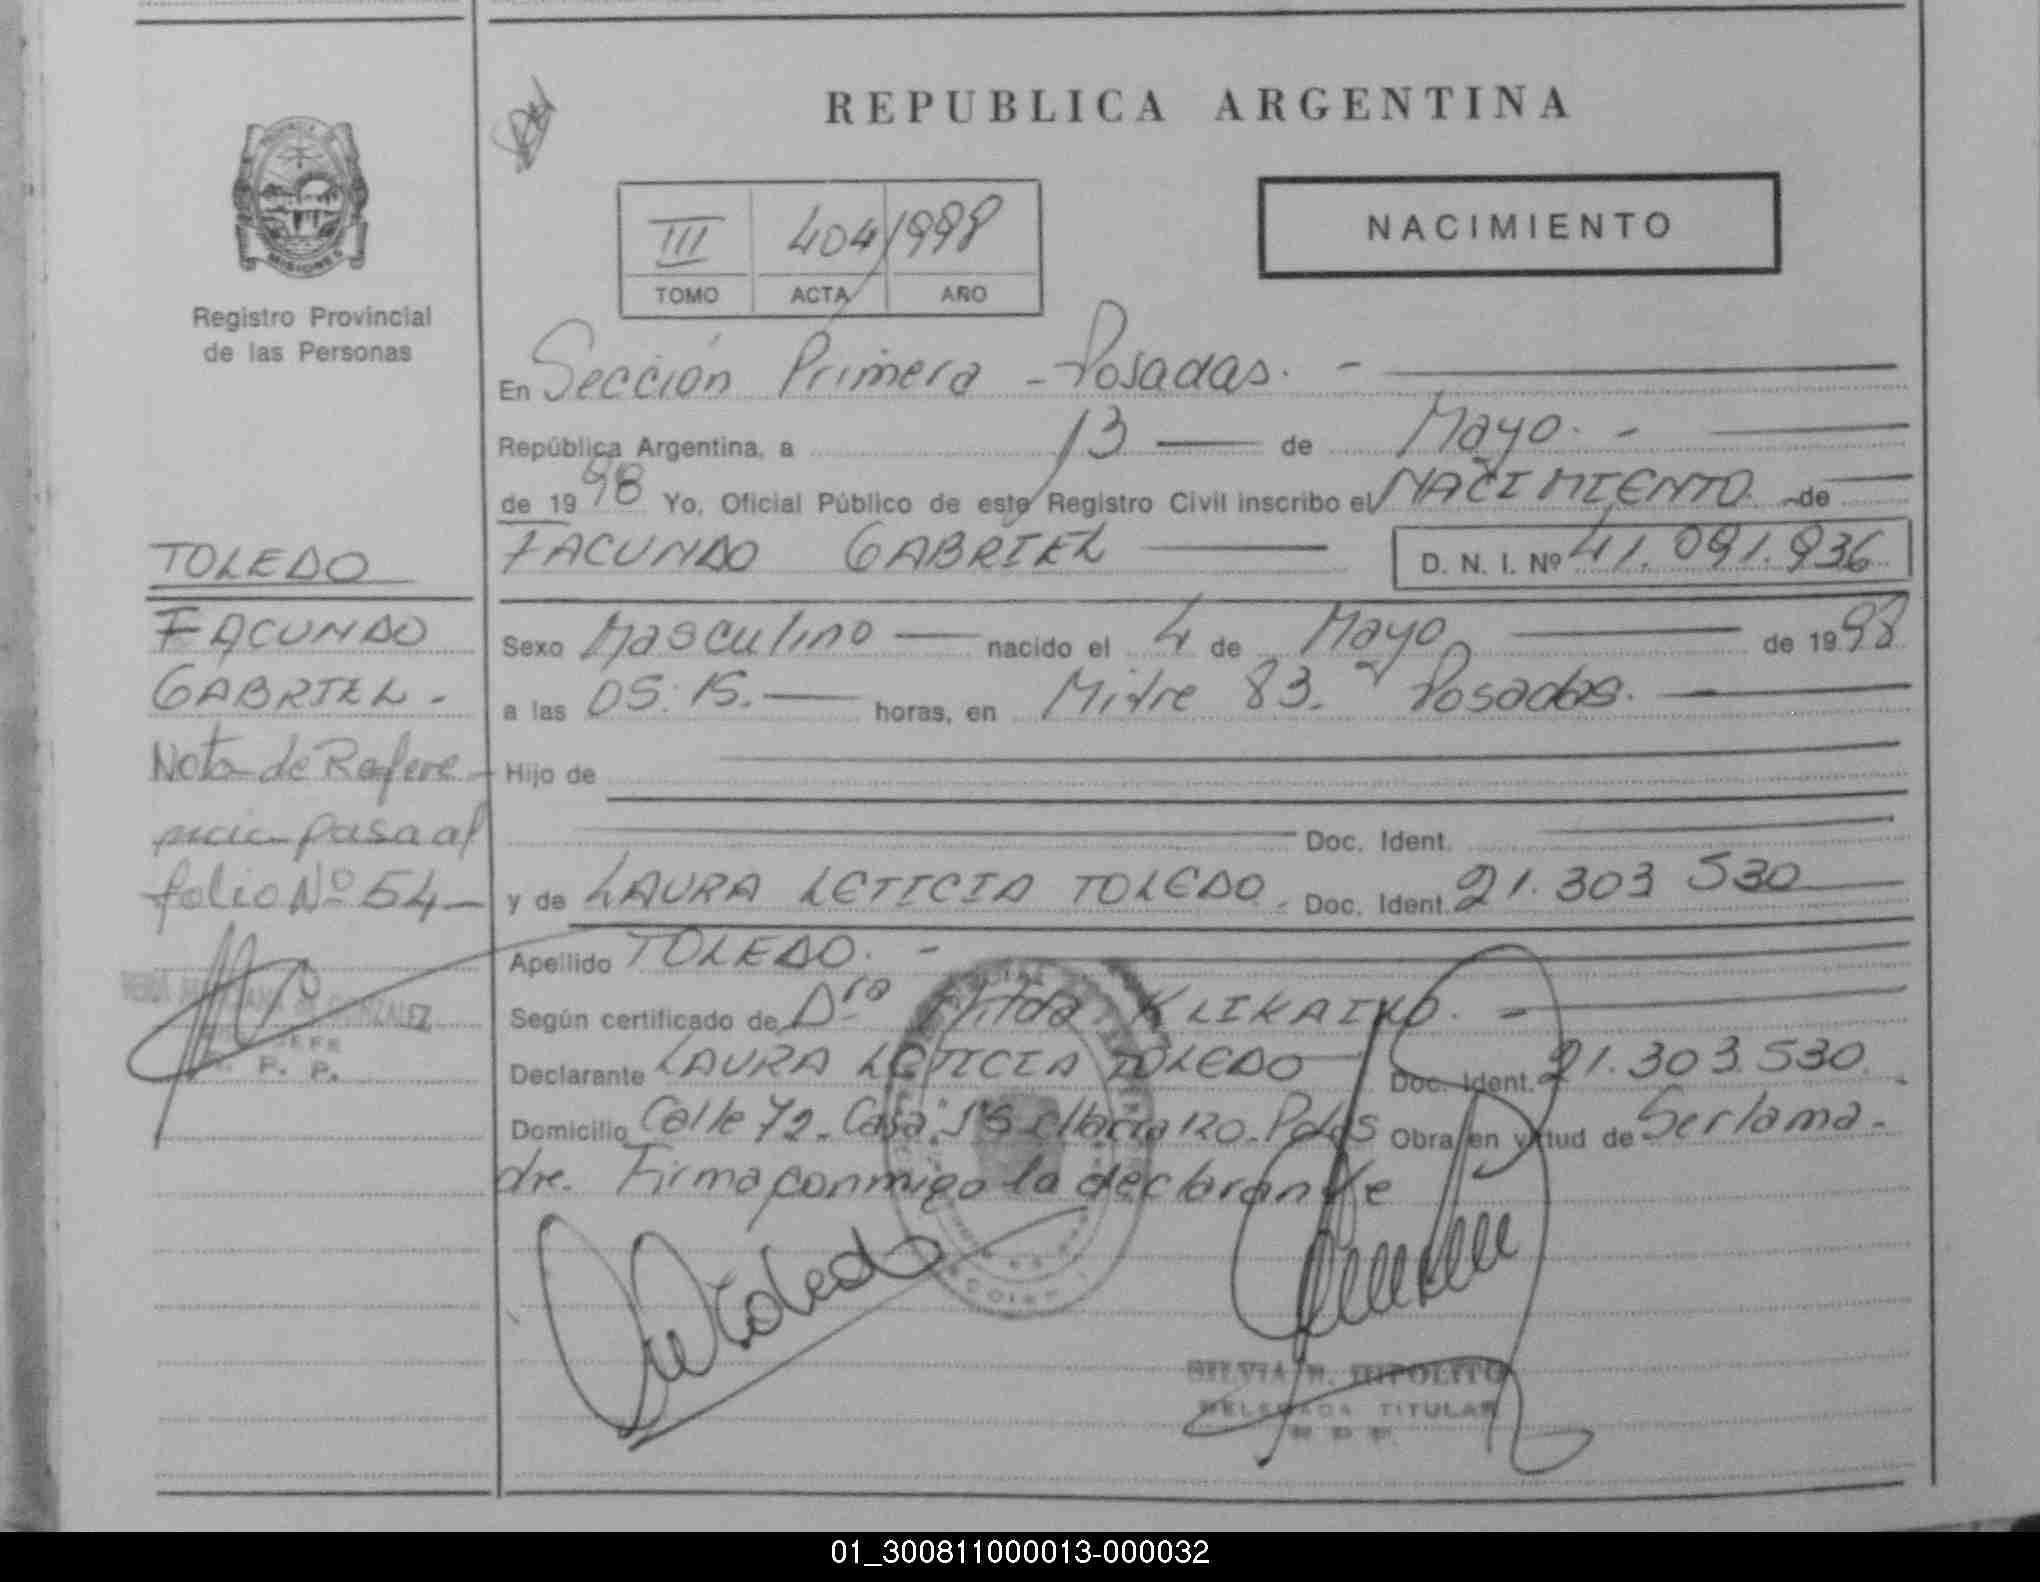 REPUBLICA ARGENTINA
MISIONES
Registro Provincial
de las Personas
III 404/1998
TOMO ACTA AÑO
NACIMIENTO
En Sección Primera - Posadas. -
República Argentina, a 13 de Mayo. -
de 1998 Yo, Oficial Público de este Registro Civil inscribo el NACIMIENTO. de
FACUNDO GABRIEL D. N. I. Nº 41.091.936
TOLEDO
FACUNDO
GABRIEL -
Nota de Refere-
ncia pasa al
folio Nº 54-
GONZALEZ
JEFE
R. P. P.
Sexo Masculino nacido el 4 de Mayo de 1998
a las 05:15. horas, en Mitre 83. Posadas.
Hijo de
Doc. Ident.
y de LAURA LETICIA TOLEDO. Doc. Ident. 21.303 530
Apellido TOLEDO. -
Según certificado de Dra Hilda KLIKAILO. -
Declarante LAURA LETICIA TOLEDO Doc. Ident. 21.303.530.
Domicilio Calle 72. Casa Obra en virtud de Ser la ma-
dre. Firma conmigo la declarante
Toledo
SILVIA R. HIPOLITO
DELEGADA TITULAR
01_300811000013-000032